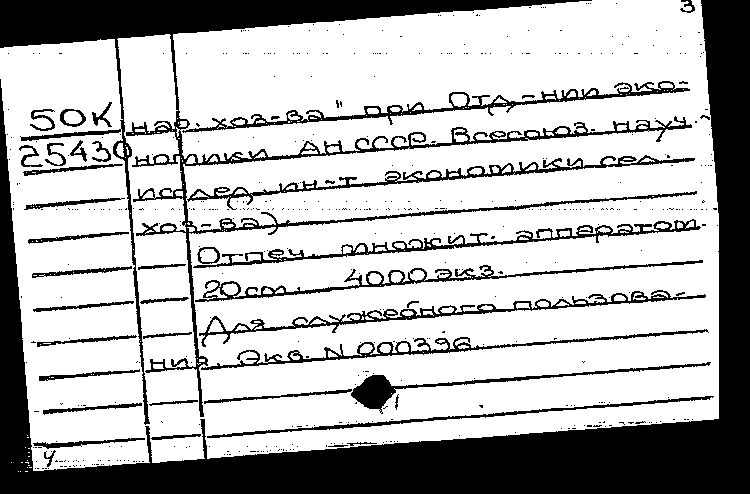 3
50К нар. хоз-ва" при Отд-нии эко-
25430 номики АН СССР. Всесоюз. науч.-
исслед. ин-т экономики сел.
хоз-ва).
Отпеч. множит. аппаратом.
20см. 4000экз.
Для служебного пользова-
ния. Экз. N 000396.
ч